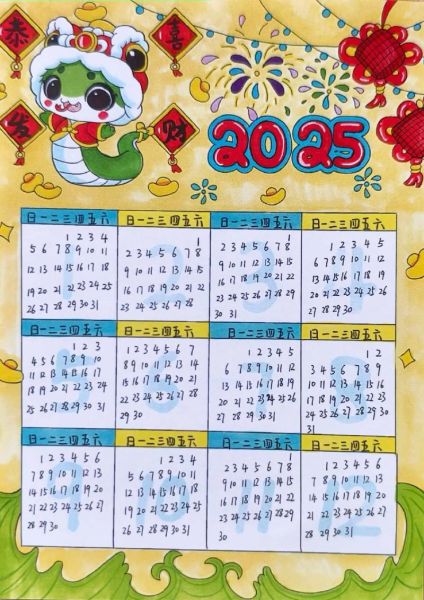 恭 喜
发 财
2025
日一二三四五六
1 2 3 4
5 6 7 8 9 10 11
12 13 14 15 16 17 18
19 20 21 22 23 24 25
26 27 28 29 30 31
日一二三四五六
1
2 3 4 5 6 7 8
9 10 11 12 13 14 15
16 17 18 19 20 21 22
23 24 25 26 27 28
日一二三四五六
1
2 3 4 5 6 7 8
9 10 11 12 13 14 15
16 17 18 19 20 21 22
23 24 25 26 27 28 29
30 31
日一二三四五六
1 2 3 4 5
6 7 8 9 10 11 12
13 14 15 16 17 18 19
20 21 22 23 24 25 26
27 28 29 30
日一二三四五六
1 2 3
4 5 6 7 8 9 10
11 12 13 14 15 16 17
18 19 20 21 22 23 24
25 26 27 28 29 30 31
日一二三四五六
1 2 3 4 5 6 7
8 9 10 11 12 13 14
15 16 17 18 19 20 21
22 23 24 25 26 27 28
29 30
日一二三四五六
1 2 3 4 5
6 7 8 9 10 11 12
13 14 15 16 17 18 19
20 21 22 23 24 25 26
27 28 29 30 31
日一二三四五六
1 2
3 4 5 6 7 8 9
10 11 12 13 14 15 16
17 18 19 20 21 22 23
24 25 26 27 28 29 30
31
日一二三四五六
1 2 3 4 5 6
7 8 9 10 11 12 13
14 15 16 17 18 19 20
21 22 23 24 25 26 27
28 29 30
日一二三四五六
1 2 3 4
5 6 7 8 9 10 11
12 13 14 15 16 17 18
19 20 21 22 23 24 25
26 27 28 29 30 31
日一二三四五六
1
2 3 4 5 6 7 8
9 10 11 12 13 14 15
16 17 18 19 20 21 22
23 24 25 26 27 28 29
日一二三四五六
1 2 3 4 5 6
7 8 9 10 11 12 13
14 15 16 17 18 19 20
21 22 23 24 25 26 27
28 29 30 31